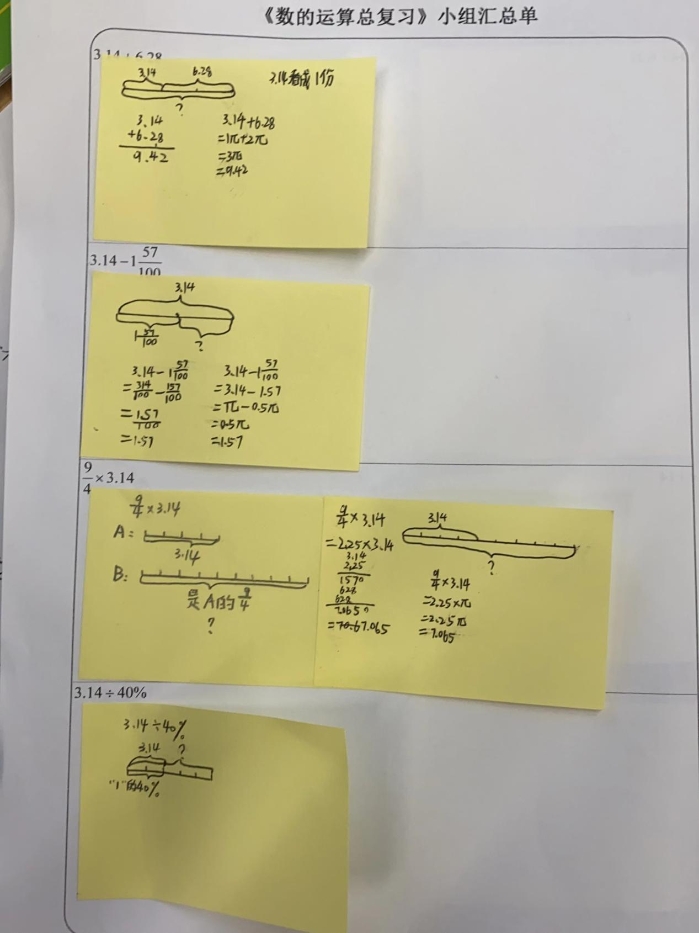 《数的运算总复习》小组汇总单
3.14+6.28
3.14 6.28
3.14看成1份
?
3.14
+6.28
9.42
3.14+6.28
=1π+2π
=3π
=9.42
3.14-1 57/100
3.14
1 57/100
?
3.14-1 57/100
=314/100-157/100
=1.57/100
=1.57
3.14-1 57/100
=3.14-1.57
=π-0.5π
=0.5π
=1.57
9/4×3.14
9/4×3.14
A:
3.14
B:
是A的9/4
?
9/4×3.14
=2.25×3.14
3.14
2.25
1570
628
628
7.0650
7.065
3.14
?
9/4×3.14
=2.25×π
=2.25π
=7.065
3.14÷40%
3.14÷40%
3.14 ?
"1"的40%